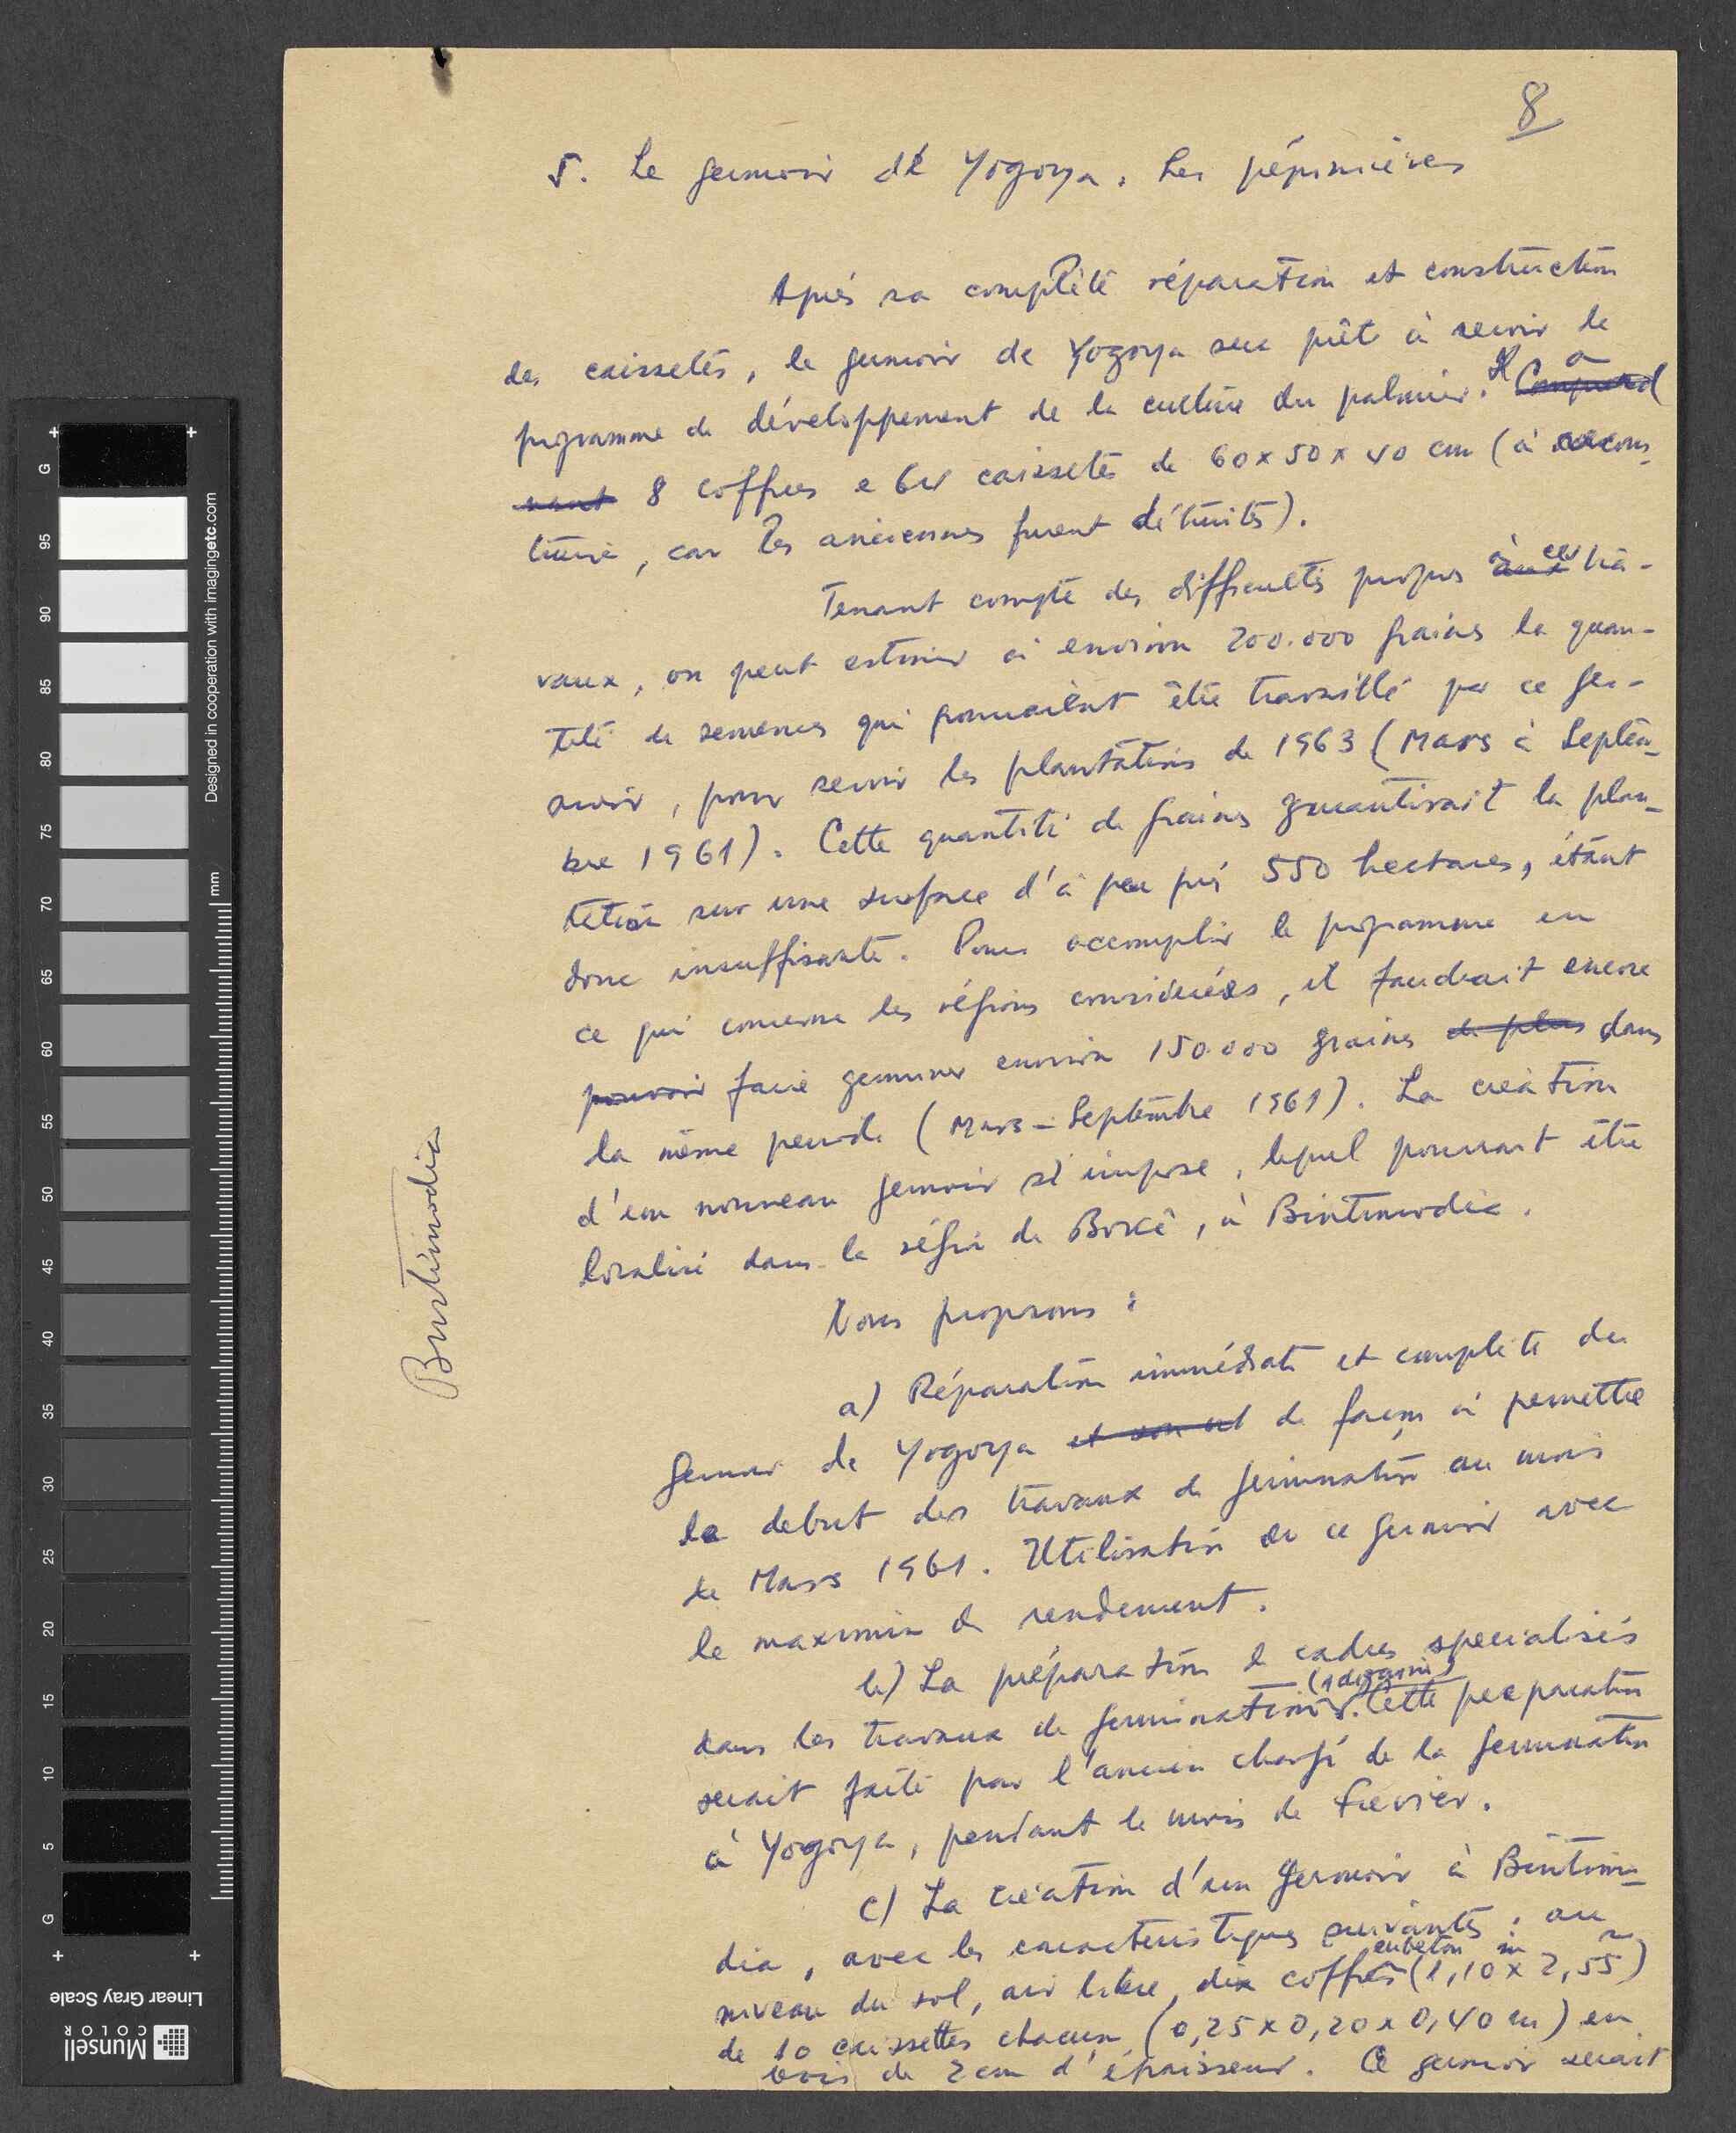 8
5. Le germoir de Yogoya. Les pépinières
Après sa complète réparation et construction
des caissetes, le germoir de Yogoya sera prêt à servir le
programme de développement de la culture du palmier. Il a
8 coffres e 64 caissetes de 60 x 50 x 40 cm (à recons-
truire, car les anciennes furent détruites).
Tenant compte des difficultés propres à ces tra-
vaux, on peut estimer à environ 200.000 graines la quan-
tité de semences qui pourraient être travaillé par ce ger-
moir, pour servir les plantations de 1963 (Mars à Septem-
bre 1961). Cette quantité de graines garantirait la plan-
tation sur une surface d'à peu près 550 hectares, étant
donc insuffisante. Pour accomplir le programme en
ce qui concerne les régions considérées, il faudrait encore
pouvoir faire germiner environ 150.000 graines de plus dans
la même periode (Mars - Septembre 1961). La création
d'un nouveau germoir s'impose, lequel pourrait être
localisé dans la région de Boké, à Bintimodia.
Nous proposons :
a) Réparation immédiate et complete du
germoir de Yogoya de façon à permettre
le debut des travaux de germination au mois
de Mars 1961. Utilisation de ce germoir avec
le maximum de rendement.
b) La préparation de cadres specialisés
dans les travaux de germination. Cette preparation
serait faite par l'ancien chargé de la germination
à Yogoya, pendant le mois de fevrier.
c) La création d'un germoir à Bintimo-
dia, avec les caracteristiques suivantes : au
en beton m
niveau du sol, air libre, dix coffres (1,10 x 2,55)
de 10 caissettes chacun (0,25 x 0,20 x 0,40 m) en
bois de 2 cm d'épaisseur. Ce germoir serait
Bintimodia
G 95 90 85 80 75 70 65 60 55 50 45 40 35 30 25 20 15 10 5 G
mm
Designed in cooperation with imagingetc.com
Linear Gray Scale
Munsell
COLOR